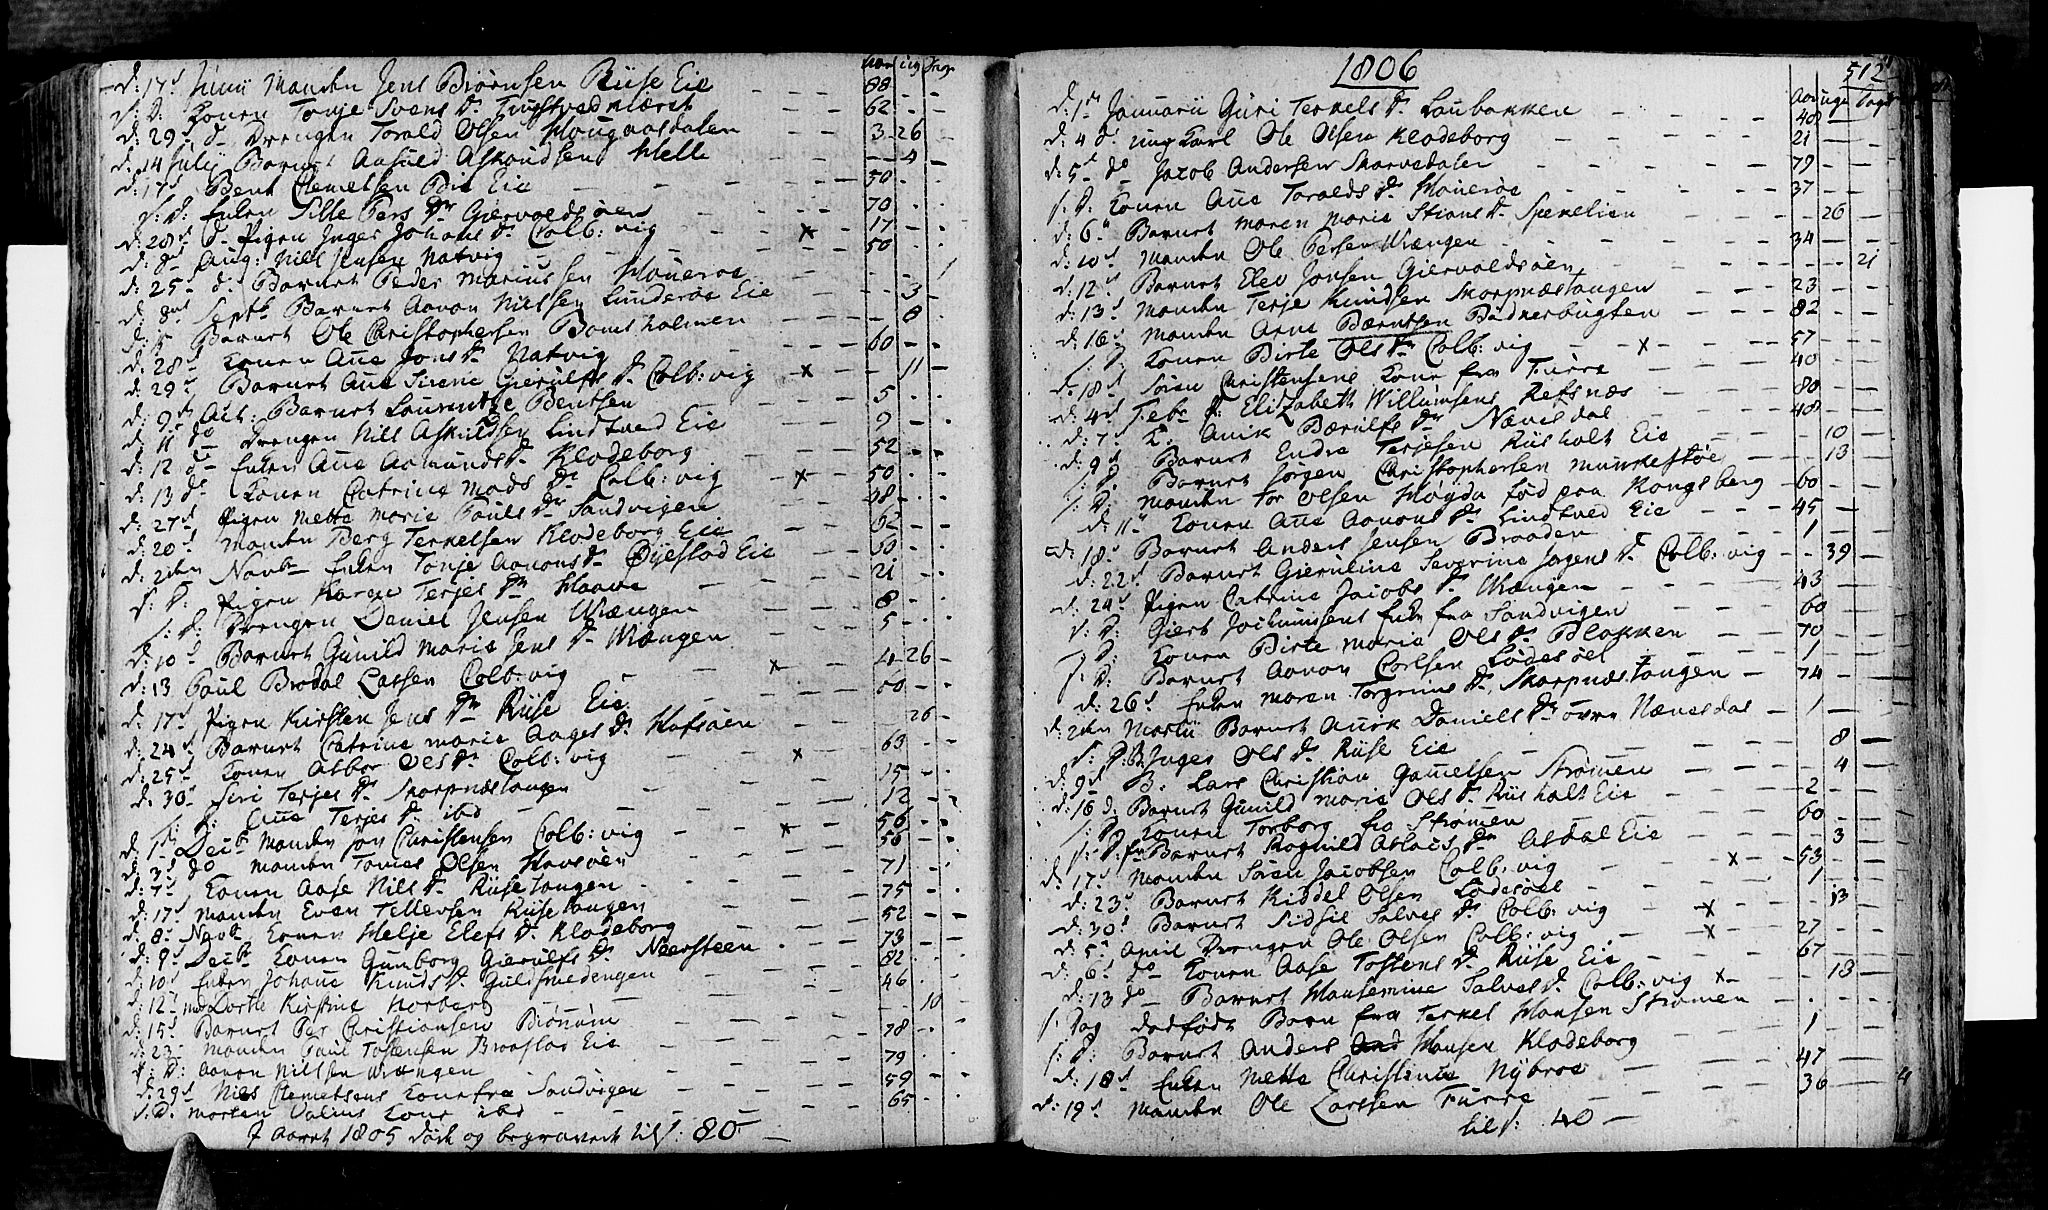 Aar ug Dage
d: 17d Junii Manden Jens Biørnsen Riise Eie 88
s: D: Konen Tonje Svens Dr Tingstvedmæret 62
d: 29d do Drengen Torald Olsen Hougaasdalen 3 26
d: 14 Julii Barnet Aasuld Askoudsen Helle 4
d: 17d Bent Clemetsen Bie Eie 50
s: D: Enken Sille Pers Dr Giervoldsøen 70
d: 28d do Pigen Inger Johans Dr Colb: vig x 17
d: 8d Aug: Niels Jensen Natvig 50
d: 25 d: Barnet Peder Mariussen Houerøe 1
d: 8d Septb Barnet Aavon Nielsen Lunderøe Eie 3
d: 5 Barnet Ole Christophersen Bomsholmen 8
d: 28d Konen Ane Jons Dr Natvig 60
d: 29d Barnet Ane Sirene Gierulfs Dr Colb: vig x 11
d: 9d Oct: Barnet Laurentze Bentsen 5
d: 11 do Drengen Niels Askildsen Lindtved Eie 9
d: 12 do Enken Ane Aamunds Dr Klodeborg 52
d: 13 do Konen Catrine Mads Dr Colb: vig x 50
d: 27d Pigen Mette Marie Pouls Dr Sandvigen 48
d: 20d Manden Berg Terkelsen Klodeborg Eie 62
d: 2den Novbr Enken Tonje Aavons Dr Øyestad Eie 50
s: D: Pigen Karen Terjes Dr Haave 21
s: D: Drengen Daniel Jensen Wrængen 8
d: 10d Barnet Gunild Marie Jens Dr Wrængen 5
d: 13 Paul Brodal Lassen Colb: vig x 4 26
d: 17d Pigen Kirsten Jens Dr Riise Eie 50
d: 24d Barnet Catrine Marie Aages Dr Hafsøen 26
d: 25d Konen Asbor Ols Dr Colb: vig x 63
d: 30d Siri Terjes Dr Skarpnæstangen 15
s: D: Ane Terjes Dr ibd 12
d: 1st Decbr Manden Jon Christensen Colb: vig x 56
d: 3d do Manden Tomes Olsen Havsøen 56
d: 7d Konen Aase Nils Dr Riisetangen 71
d: 17d Manden Even Tellevsen Riisetangen 75
d: 8d Novbr Konen Helje Elefs Dr Klodeborg 52
d: 9d Decbr Konen Gunborg Gierulfs Dr Neersteen 73
d: 10d Enken Johane Knuds Dr Guldsmedengen 82
d: 12 Dorthe Kirstine Norberg 46
d: 15d Barnet Per Christiansen Biønnøm 10
d: 23 Manden Paul Tostensen Braastad Eie 78
s: D: Aavon Nielsen Wrængen 79
d: 29d Niels Clemetsens Kone fra Sandvigen 59
s: D: Morten Kone ibd 65
I Aaret 1805 døde og begravet til s: 80

1806
512
Aar uge Dage
d: 1st Januarii Guri Terkels Dr Loubakken 48
d: 4 do ung Karl Ole Olsen Klodeborg 21
d: 5d do Jacob Andersen Skarvedalen 79
s: D: Konen Ane Toralds Dr Houerøe 37
d: 6 Barnet Maren Marie Stians Dr Spekelien 26
d: 10d Manden Ole Persen Wrængen 34
d: 12d Barnet Elev Jonsen Giervoldsøen 21
d: 13d Manden Terje Knudsen Skarpnæstangen 23
d: 16d Manden Arne Bærentsen Bødkerbugten 82
s: D: Konen Birte Ols Dr Colb: vig x 57
d: 18d Søren Christensens Kone fra Furre 40
d: 4d Febr Elizabeth Willumsens Refsnæs 80
d: 7d K: Anik Bærulfs Dr Nævisdal 48
d: 9d Barnet Endre Terjesen Riisholt Eie 10
s: D: Barnet Jørgen Christophersen Munkestøe 13
s: D: Manden Tor Olsen Høgda fød paa Kongsberg 60
d: 11 Konen Ane Aavons Dr Lindtved Eie 45
d: 18d Barnet Anders Jensen Braaden 1
d: 22d Barnet Gieruline Severine Jørgens Dr Colb: vig 39
d: 24d Pigen Catrine Jacobs Dr Wrængen 43
s: D: Giert Jochumsens Enke fra Sandvigen 60
s: D: Konen Birte Marie Ols Dr Blakken 70
s: D: Barnet Aavon Carlsen Lødesøel 1
d: 26d Enken Maren Torgrims Dr Skarpnæstangen 74
d: 2den Martii Barnet Aurek Daniels Dr øvre Nævesdal 1
s: D: B: Inger Ols Dr Riise Eie 8
d: 9d B: Lars Christian Gamelsen Strømen 4
d: 16 d: Barnet Gunild Marie Ols Dr Riisholt Eie 2
s: D: Konen Torborg fra Strømen 60
s: D: Barnet Rognild Aslaus Dr Asdal Eie 3
d: 17d Manden Søren Jacobsen Colb: vig x 53
d: 23d Barnet Kiddel Olsen Lødesøel 1
d: 30d Barnet Sidsil Salves Dr Colb: vig x 13
d: 5d April Drengen Ole Olsen Colb: vig x 27
d: 6d do Konen Aase Tostens Dr Riise Eie 67
d: 13 do Barnet Hansemine Salves Dr Colb: vig x 18
s: Dag dødfødt Barn fra Terkel Hansen Strømen
s: D: Barnet Anders Hansen Klodeborg 1
d: 18d Enken Mette Christine Nybroe 47
d: 19d Manden Ole Larsen Furre 36
til s: 40